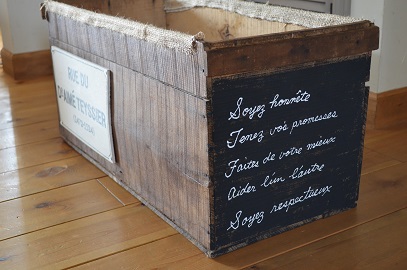 RUE DU
Dr AIMÉ TEYSSIER
Soyez honnête
Tenez vos promesses
Faites de votre mieux
Aider l'un l'autre
Soyez respectueux